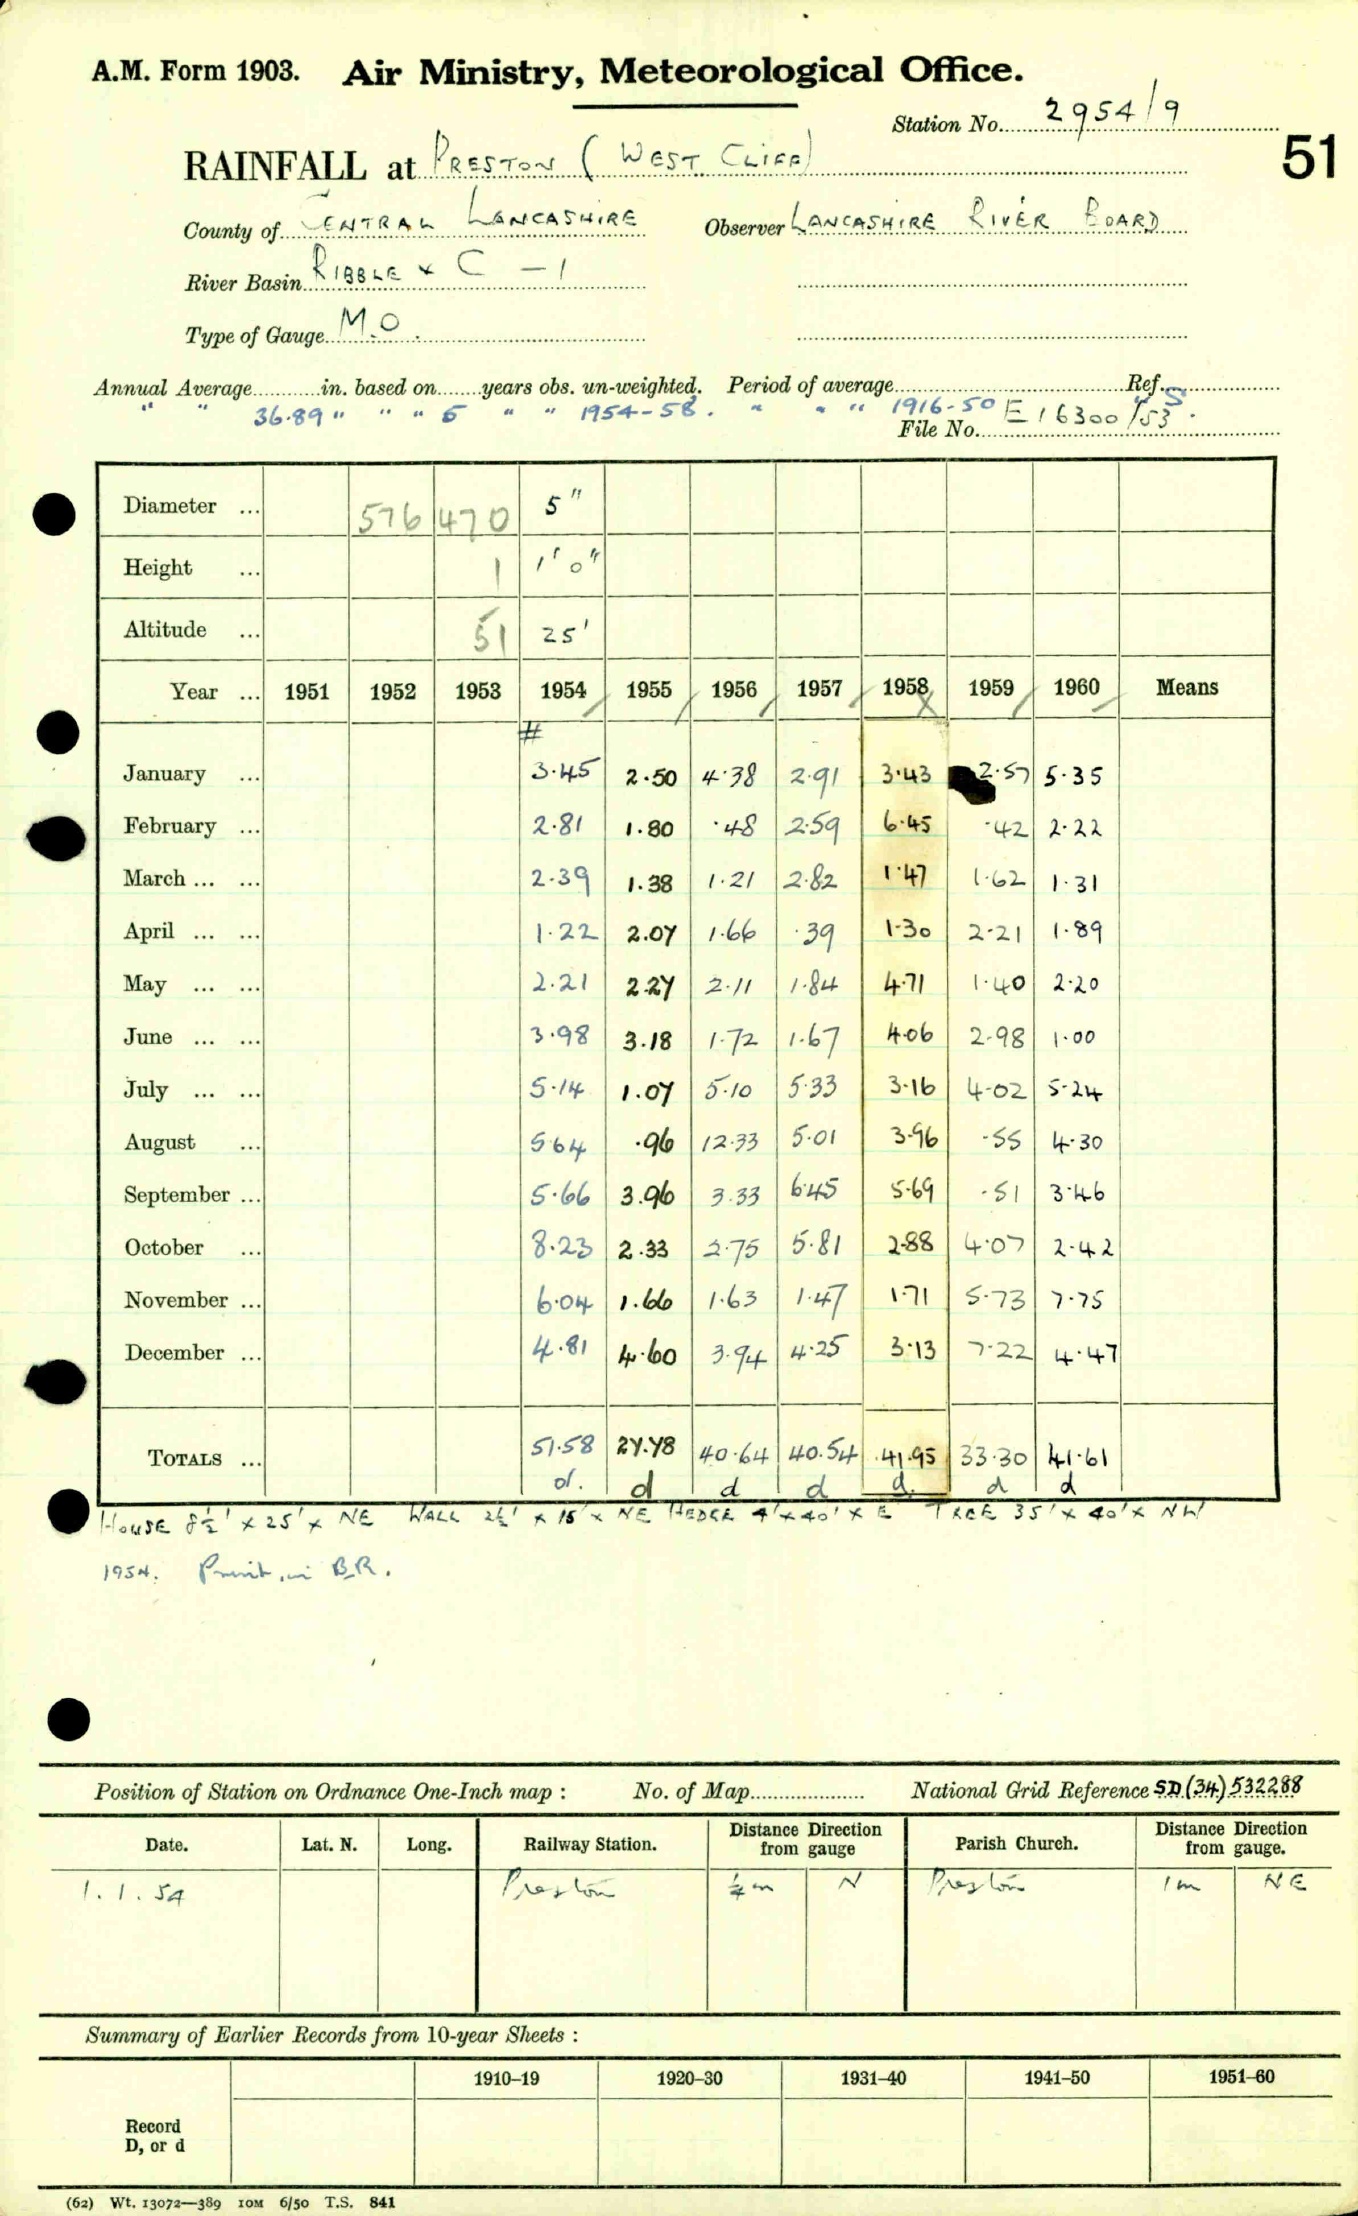 A.M. Form 1903. Air Ministry, Meteorological Office.
Station No. 2954/9
51
RAINFALL at PRESTON (WEST CLIFF)
County of CENTRAL LANCASHIRE Observer LANCASHIRE RIVER BOARD
River Basin RIBBLE & C - 1
Type of Gauge M.O.
Annual Average in. based on years obs. un-weighted. Period of average Ref.
" " 36.89 " " " 5 " " 1954-58. " " " 1916-50 S
File No. E 16300/53
Diameter ... 576 470 5"
Height ... 1 1' 0"
Altitude ... 51 25'
Year ... 1951 1952 1953 1954 1955 1956 1957 1958 1959 1960 Means
#
January ... 3.45 2.50 4.38 2.91 3.43 2.57 5.35
February ... 2.81 1.80 .48 2.59 6.45 .42 2.22
March ... ... 2.39 1.38 1.21 2.82 1.47 1.62 1.31
April ... ... 1.22 2.07 1.66 .39 1.30 2.21 1.89
May ... ... 2.21 2.27 2.11 1.84 4.71 1.40 2.20
June ... ... 3.98 3.18 1.72 1.67 4.06 2.98 1.00
July ... ... 5.14 1.07 5.10 5.33 3.16 4.02 5.24
August ... 5.64 .96 12.33 5.01 3.96 .55 4.30
September ... 5.66 3.96 3.33 6.45 5.69 .51 3.46
October ... 8.23 2.33 2.75 5.81 2.88 4.07 2.42
November ... 6.04 1.66 1.63 1.47 1.71 5.73 7.75
December ... 4.81 4.60 3.94 4.25 3.13 7.22 4.47
TOTALS ... 51.58 27.78 40.64 40.54 41.95 33.30 41.61
d. d d d d. d d
HOUSE 8½' x 25' x NE WALL 2½' x 15' x NE HEDGE 4' x 40' x E TREE 35' x 40' x NW
1954. Print in B.R.
Position of Station on Ordnance One-Inch map : No. of Map National Grid Reference SD (34) 532288
Date. Lat. N. Long. Railway Station. Distance from gauge Direction Parish Church. Distance from gauge. Direction
1.1.54 Preston ¼ m N Preston 1 m NE
Summary of Earlier Records from 10-year Sheets :
1910–19 1920–30 1931–40 1941–50 1951–60
Record
D, or d
(62) Wt. 13072—389 10M 6/50 T.S. 841